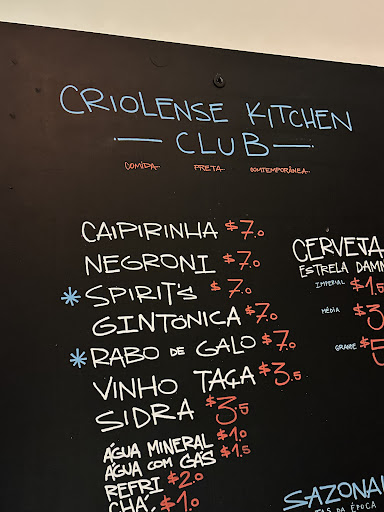 CRIOLENSE KITCHEN
— CLUB —
COMIDA PRETA CONTEMPORÂNEA
CAIPIRINHA $7.0
NEGRONI $7.0
* SPIRIT'S $7.0
GINTÓNICA $7.0
* RABO DE GALO $7.0
VINHO TAÇA $3.5
SIDRA $3.5
ÁGUA MINERAL $1.0
ÁGUA COM GÁS $1.5
REFRI $2.0
CHÁ, $1.0
CERVEJA
ESTRELA DAMM
IMPERIAL $1.5
MÉDIA $3
GRANDE $5
SAZONAL
DA ÉPOCA